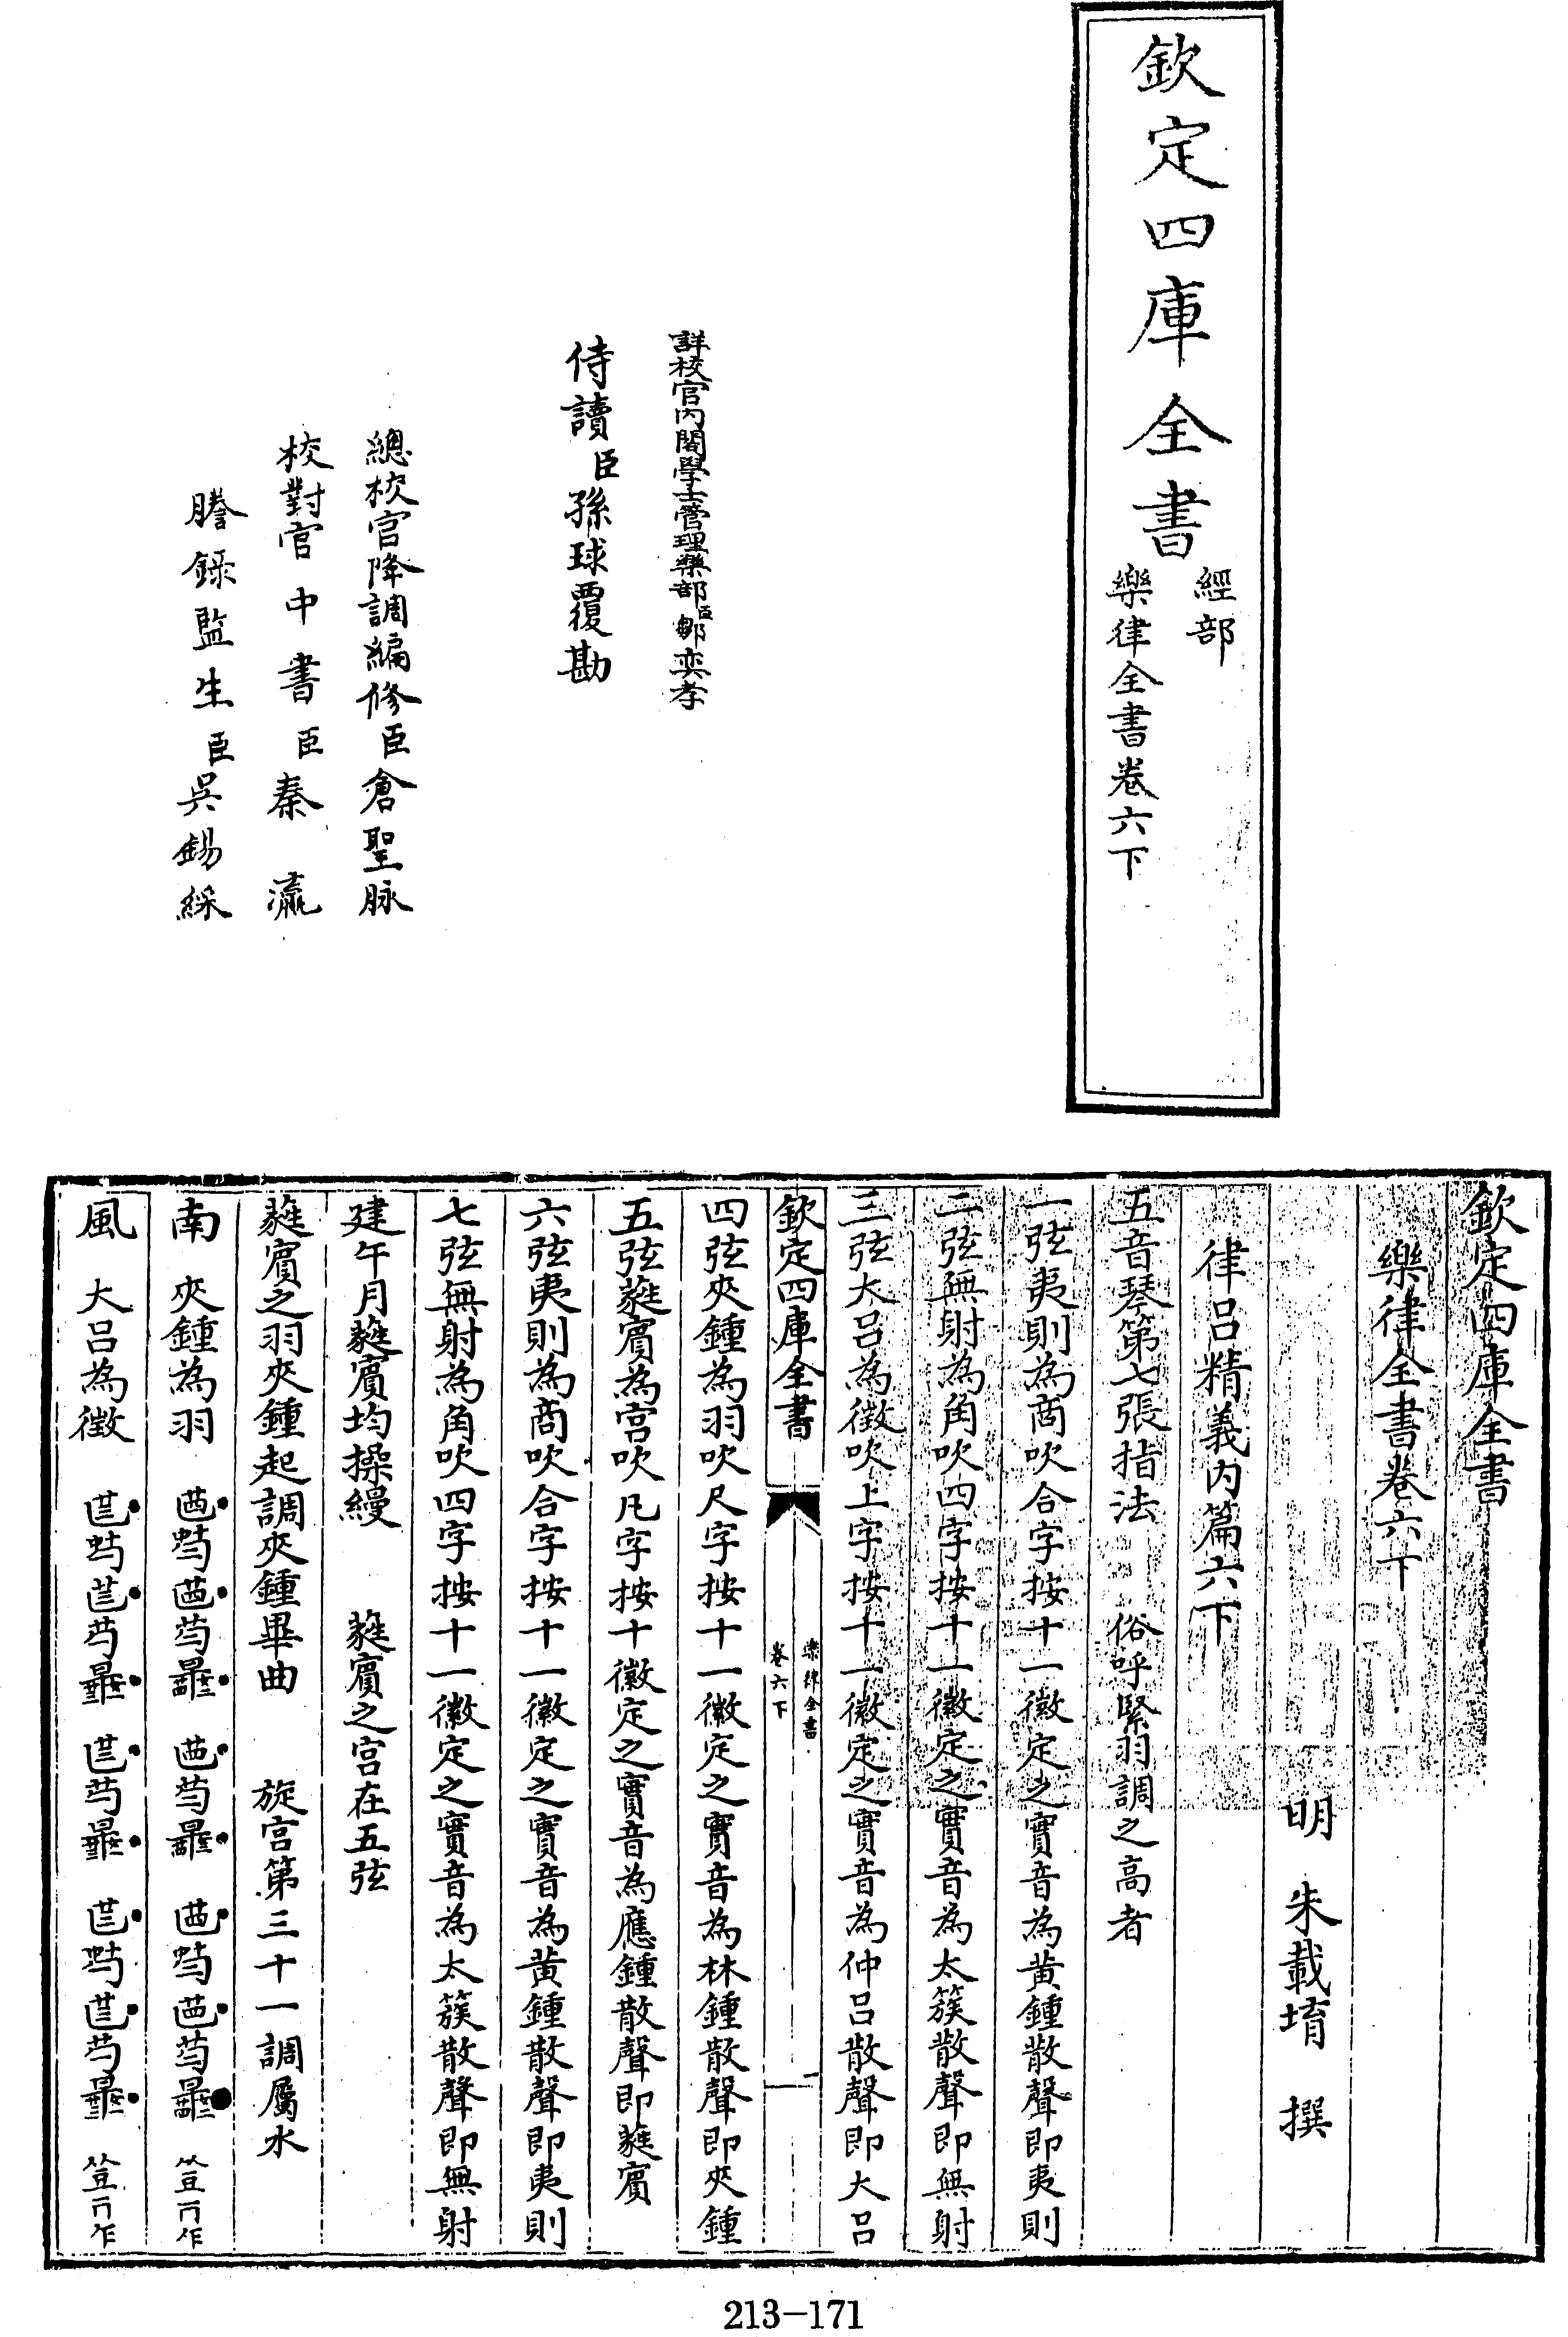 欽定四庫全書
經部
樂律全書卷六下
詳校官内閣學士管理樂部臣鄒奕孝
侍讀臣孫球覆勘
總校官降調編修臣倉聖脉
校對官中書臣秦瀛
謄錄監生臣吳錫綵
欽定四庫全書
樂律全書卷六下
明 朱載堉 撰
律吕精義内篇六下
五音琴第七張指法 俗呼緊羽調之高者
一弦夷則為商吹合字按十一徽定之實音為黄鍾散聲即夷則
二弦無射為角吹四字按十一徽定之實音為太簇散聲即無射
三弦大吕為徵吹上字按十一徽定之實音為仲吕散聲即大吕
欽定四庫全書
樂律全書
卷六下
一
四弦夾鍾為羽吹尺字按十一徽定之實音為林鍾散聲即夾鍾
五弦蕤賓為宫吹凡字按十徽定之實音為應鍾散聲即蕤賓
六弦夷則為商吹合字按十一徽定之實音為黄鍾散聲即夷則
七弦無射為角吹四字按十一徽定之實音為太簇散聲即無射
建午月蕤賓均操縵 蕤賓之宫在五弦
蕤賓之羽夾鍾起調夾鍾畢曲 旋宫第三十一調屬水
南 夾鍾為羽
風 大吕為徵
213-171